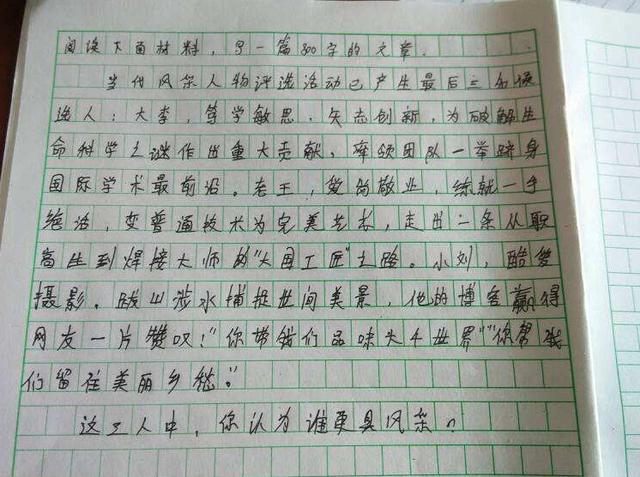 阅读下面材料，写一篇800字的文章．
当代风采人物评选活动已产生最后三名候
选人：大李，笃学敏思．矢志创新，为破解生
命科学之谜作出重大贡献．率领团队一举跻身
国际学术最前沿。老王，爱岗敬业，练就一手
绝活，变普通技术为完美艺术，走出一条从职
高生到焊接大师的"大国工匠"之路。小刘，酷爱
摄影．跋山涉水捕捉世间美景，他的博客赢得
网友一片赞叹！"你带我们品味大千世界""你帮我
们留住美丽乡愁。"
这三人中，你认为谁更具风采？